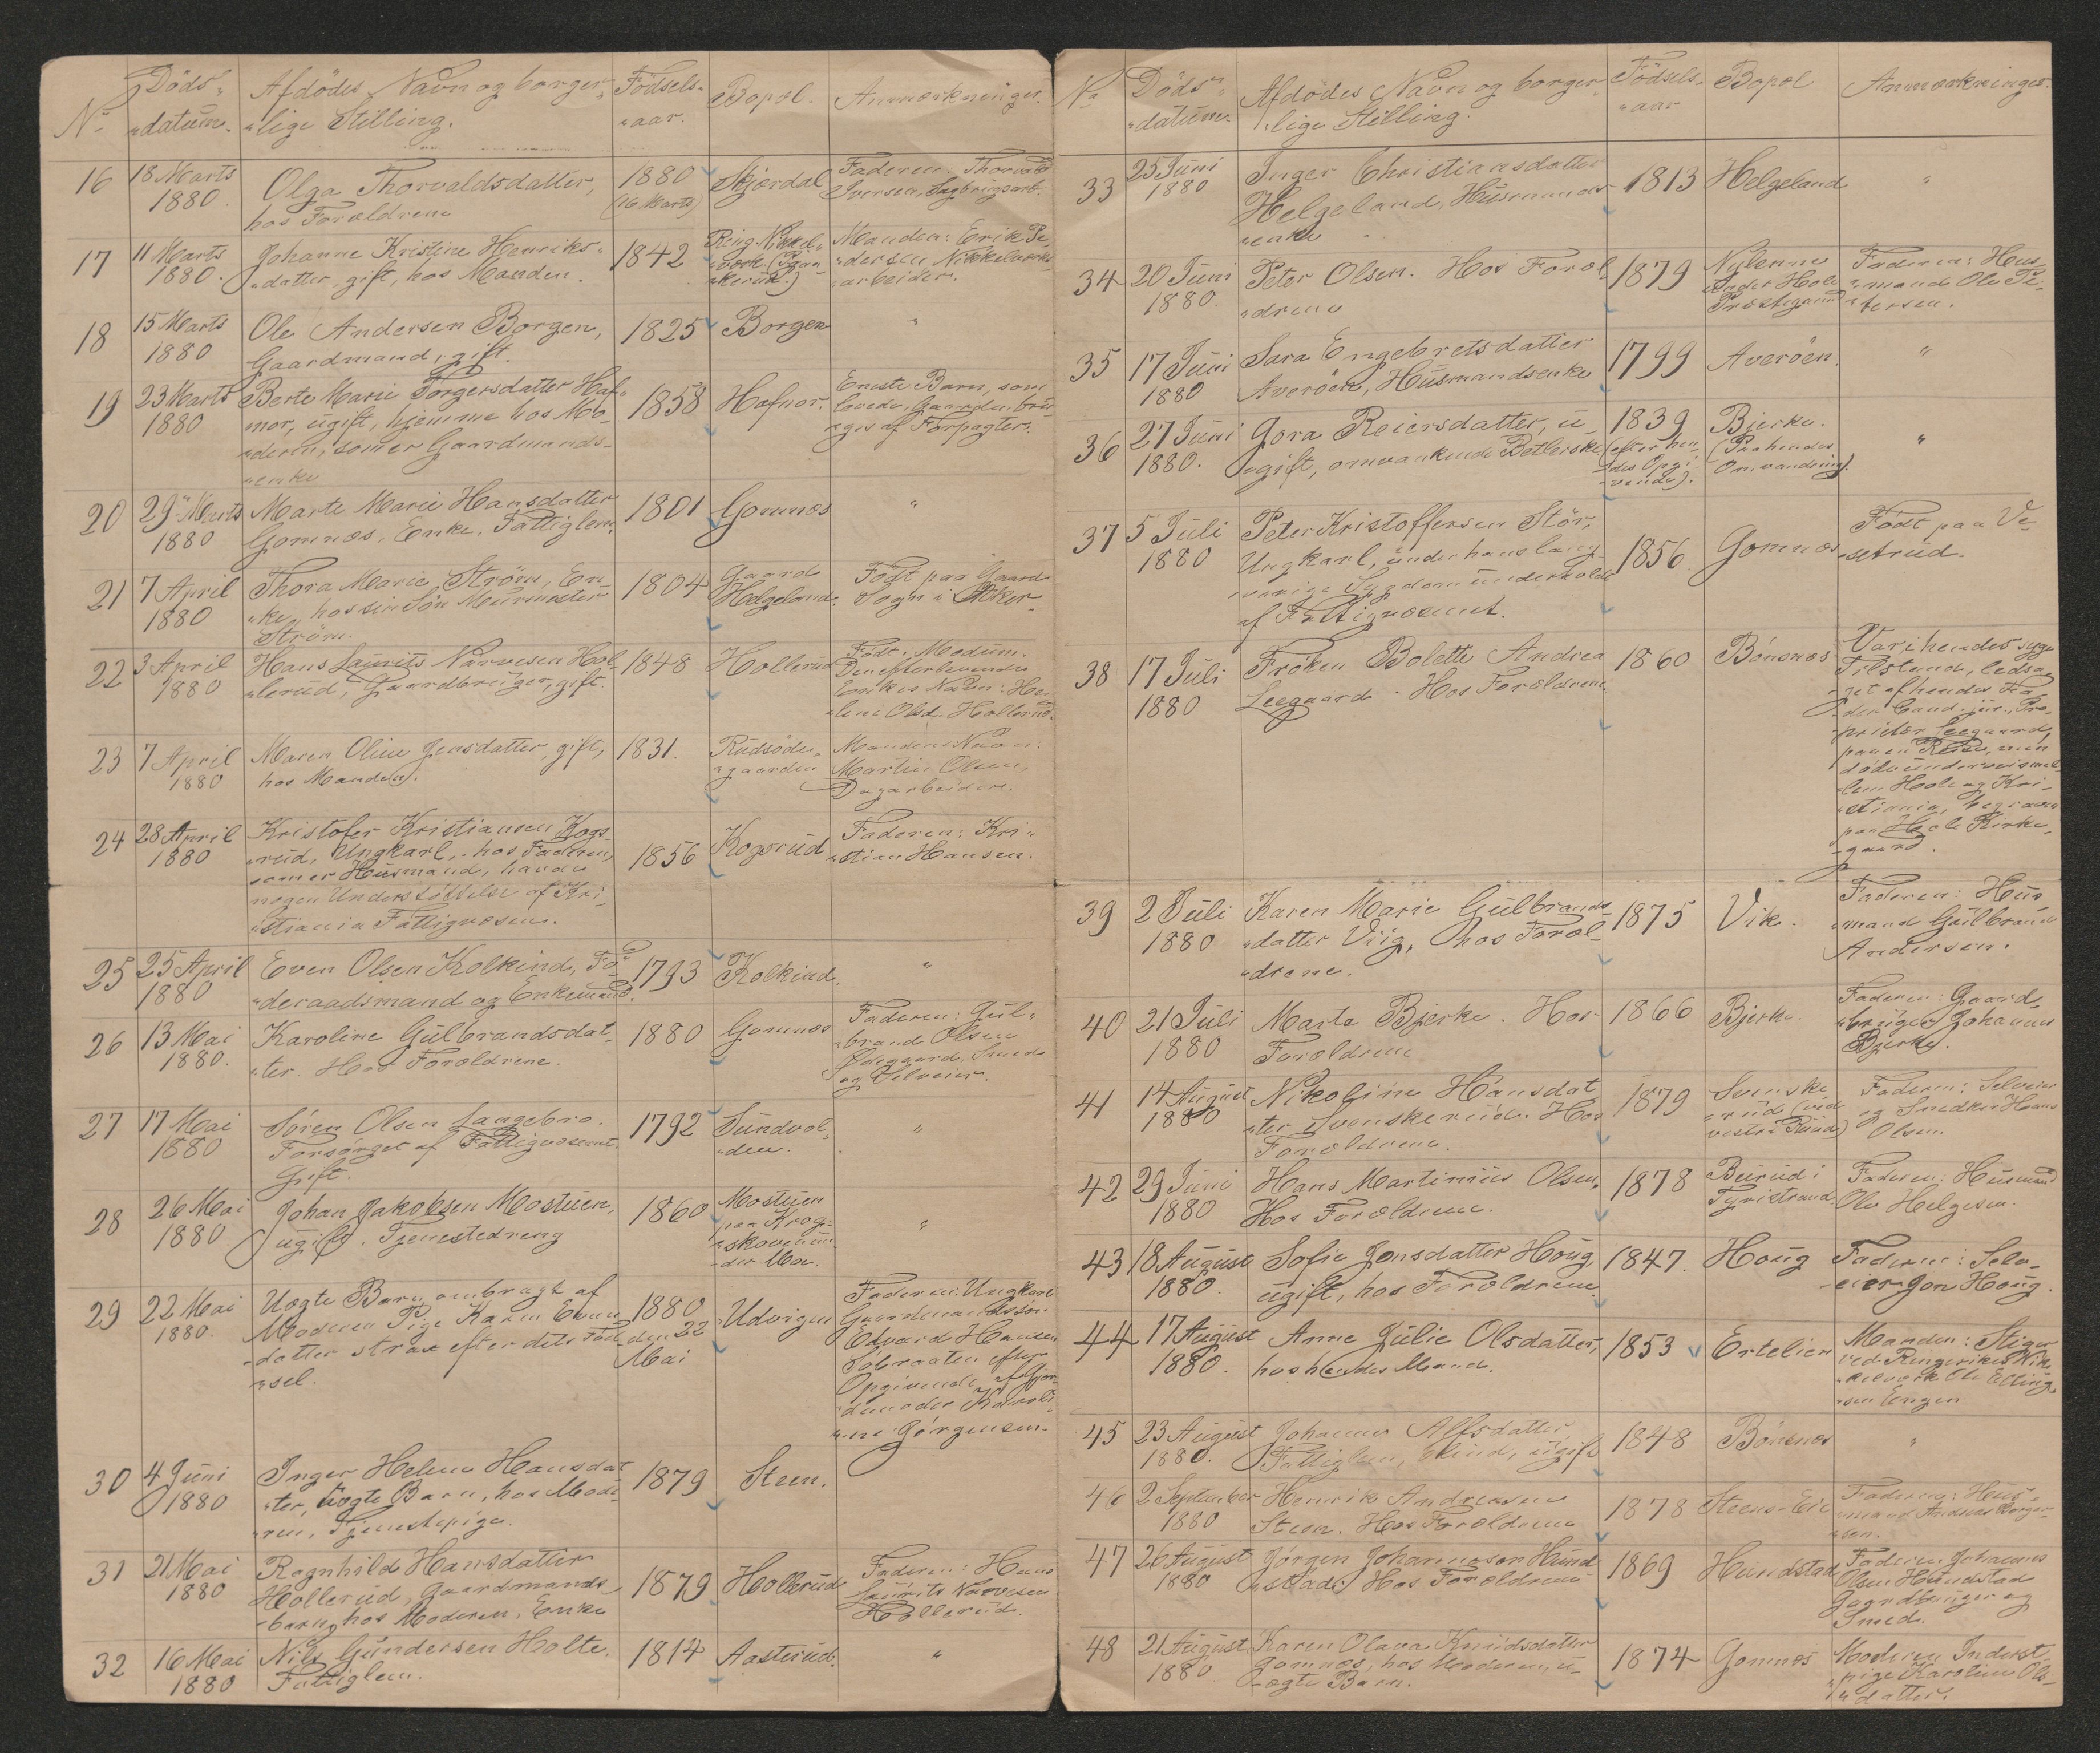 No
Döds-
"datum.
Afdödes Navn og borger-
"lige Stilling.
Födsels-
"aar.
Bopæl.
Anmærkninger.
16
18 Marts
1880.
Olga Thorvaldsdatter,
hos Forældrene
1880
(16 Marts)
Skjærdal
Faderen: Thorvald
Iversen,
17
11 Marts
1880.
Johanne Kristine Henriks-
"datter, gift, hos Manden.
1842
Ring. Nikkel-
"værk.
Manden: Erik Pe-
"dersen Nikkelværks-
"arbeider.
18
15 Marts
1880
Ole Andersen Borgen,
Gaardmand, gift.
1825
Borgen
"
19
23 Marts
1880
Berte Marie Torgersdatter Haf-
nor, ugift, hjemme hos Mo-
"deren, som er Gaardmands-
"enke
1858
Hafnor.
Eneste Barn, som
levede, Gaarden bru-
"ges af Forpagter.
20
29 Marts
1880
Marte Marie Hansdatter
Gomnæs, Enke, Fattiglem.
1801
Gomnæs
"
21
7 April
1880
Thora Marie Ström, En-
"ke, hos sin Sön Muurmester
Ström.
1804
Gaard
Helgeland.
Födt paa Gaard
Sogn i Aker.
22
3 April
1880
Hans Laurits Narvesen Hol-
"lerud, Gaardbruger, gift.
1848
Hollerud
Födt i Modum.
Den efterlevende
Enkes Navn: He-
"lene Olsd. Hollerud.
23
7 April
1880
Maren Oline Jensdatter, gift,
hos Manden.
1831.
Rudsöde-
"gaarden
Mandens Navn:
Martin Olsen,
Dagarbeider.
24
28 April
1880
Kristofer Kristiansen Kogs-
"rud, Ungkarl, hos Faderen,
som er Husmand, havde
nogen Understöttelse af Kri-
"stiania Fattigvæsen.
1856
Kogsrud
Faderen: Kri-
"stian Hansen.
25
25 April
1880
Even Olsen Kolkind, Fö-
"deraadsmand og Enkemand.
1793
Kolkind.
"
26
13 Mai
1880.
Karoline Gulbrandsdat-
"ter. Hos Forældrene.
1880
Gomnæs
Faderen: Gul-
"brand Olsen
Ödegaard, Smed
og Selveier.
27
17 Mai
1880
Sören Olsen Langebro.
Forsörget af Fattigvæsenet.
Gift.
1792
Sundvol-
"den.
"
28
26 Mai
1880
Johan Jakobsen Mostuen,
ugift. Tjenestedreng
1860
Mostuen
paa Krog-
"skoven un-
"der Moe.
"
29
22 Mai
1880.
Uægte Barn ombragt af
Moderen Pige Karen Evens-
"datter strax efter dets Föd-
"sel.
1880
den 22
Mai
Udvigen
Faderen: Ungkarl
Gaardmandssön
Edvard Hansen
efter
Opgivende af Gjor-
"demoder Karoli-
"ne Jörgensen.
30
4 Juni
1880
Inger Helene Hansdat-
"ter, Uægte Barn, hos Mode-
"ren, Tjenestepige.
1879
Steen.
31
21 Mai
1880
Ragnhild Hansdatter
Hollerud, Gaardmands-
"barn, hos Moderen, Enke
1879
Hollerud
Faderen: Hans
Laurits Narvesen
Hollerud.
32
16 Mai
1880
Nils Gundersen Holte.
Fattiglem.
1814
Aasterud.
"
No
Döds-
"datum.
Afdödes Navn og borger-
"lige Stilling.
Födsels-
"aar
Bopæl
Anmærkninger.
33
25 Juni
1880
Inger Christiansdatter
Helgeland, Husmands-
"enke
1813
Helgeland
"
34
20 Juni
1880
Peter Olsen. Hos Foræl-
"drene
1879
Nylenne
under Hole
Præstegaard
Faderen: Hus-
"mand Ole Pe-
"tersen.
35
17 Juni
1880
Sara Engebretsdatter
Averöen, Husmandsenke
1799
Averöen.
"
36
27 Juni
1880.
Gora Reiersdatter, u-
"gift, omvankende Betlerske
1839
(efter hen-
"des Opgi-
"vende).
Bjerke.
(Paa hendes
Omvandring).
"
37
5 Juli
1880
Peter Kristoffersen Stör,
Ungkarl, under hans lang-
"varige Sygdom underholdt
af Fattigvæsenet.
1856.
Gomnæs
Födt paa Ve-
"setrud.
38
17 Juli
1880
Fröken Bolette Andrea
Leegaard. Hos Forældrene.
1860
Bönsnæs
Var i hendes syge
Tilstand, ledsa-
"get af hendes Fa-
"der Cand. jur., Pro-
"prietær Leegaard,
paa en Reise, men
döde underveis mel-
"lem Hole og Kri-
"stiania, begraven
paa Hole Kirke-
"gaard.
39
2 Juli
1880
Karen Marie Gulbrands-
"datter Viig, hos Foræl-
"drene.
1875
Vik.
Faderen: Hus-
"mand Gulbrand
Andersen.
40
21 Juli
1880
Marte Bjerke. Hos
Forældrene
1866
Bjerke.
Faderen: Gaard-
"bruger Johannes
Bjerke.
41
14 August
1880
Nikoline Hansdat-
"ter Svenskerud. Hos
Forældrene.
1879
Svenske-
"rud (ved
vestre Rud)
Faderen: Selveier
og Snedker Hans
Olsen.
42
29 Juni
1880
Hans Martinius Olsen.
Hos Forældrene.
1878
Burud i
Tyristrand
Faderen: Husmand
Ole Helgesen.
43
18 August
1880.
Sofie Jonsdatter Houg,
ugift, hos Forældrene
1847.
Houg
Faderen: Selv-
"eier Jon Houg.
44
17 August
1880.
Anne Julie Olsdatter,
hos hendes Mand.
1853
Ertelien
Manden: Stiger
ved Ringerikes Nik-
"kelværk Ole Elling-
"sen Engen
45
23 August
1880.
Johanne Alfsdatter
Fattiglem, blind, ugift
1848
Bönsnæs
"
46
2 September
1880
Henrik Andreasen
Steen. Hos Forældrene
1878
Steens-Eie
Faderen: Hus-
"mand Andreas
"sen.
47
26 August
1880
Jörgen Johannesen Hund-
"stad. Hos Forældrene
1869
Hundstad
Faderen Johannes
Olsen Hundstad
Gaardbruger og
Smed.
48
21 August
1880
Karen Olava Knudsdatter
Gomnæs, hos Moderen, u-
"ægte Barn.
1874
Gomnæs
Moderen Inderst-
"pige Karoline Ols-
"datter.